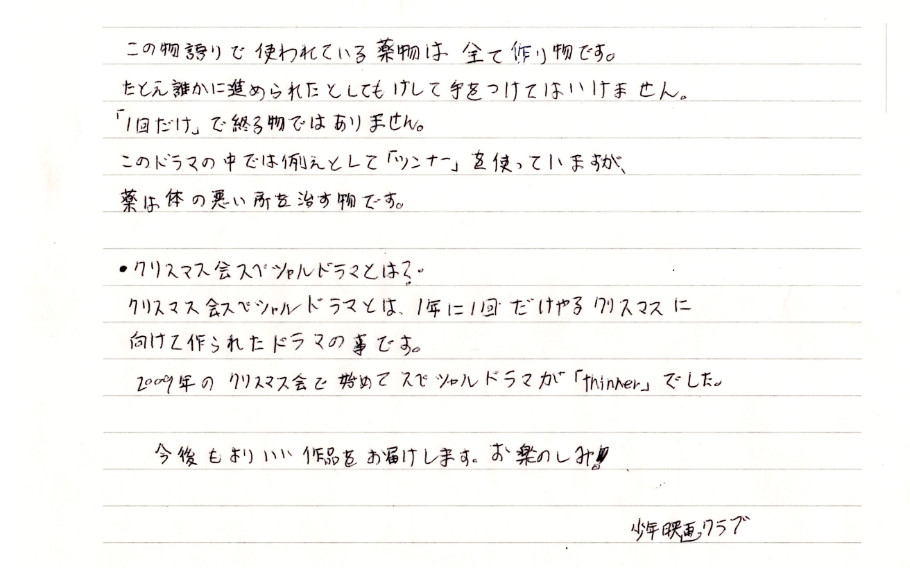 この物語りで使われている薬物は全て作り物です。
たとえ誰かに進められたとしてもけして手をつけてはいけません。
「1回だけ」で終る物ではありません。
このドラマの中では例えとして「ツンナー」を使っていますが、
薬は体の悪い所を治す物です。
•クリスマス会スペシャルドラマとは?.
クリスマス会スペシャルドラマとは、1年に1回だけやるクリスマスに
向けて作られたドラマの事です。
2009年のクリスマス会で始めてスペシャルドラマが「thinner」でした。
今後もよりいい作品をお届けします。お楽のしみ!
少年映画クラブ